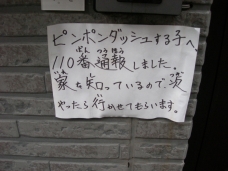 ピンポンダッシュする子へ
110番通報しました。
家を知っているので、次
やったら行かせてもらいます。